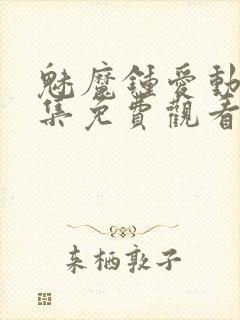 魅魔鍾愛動
集免費觀看
来栖敦子